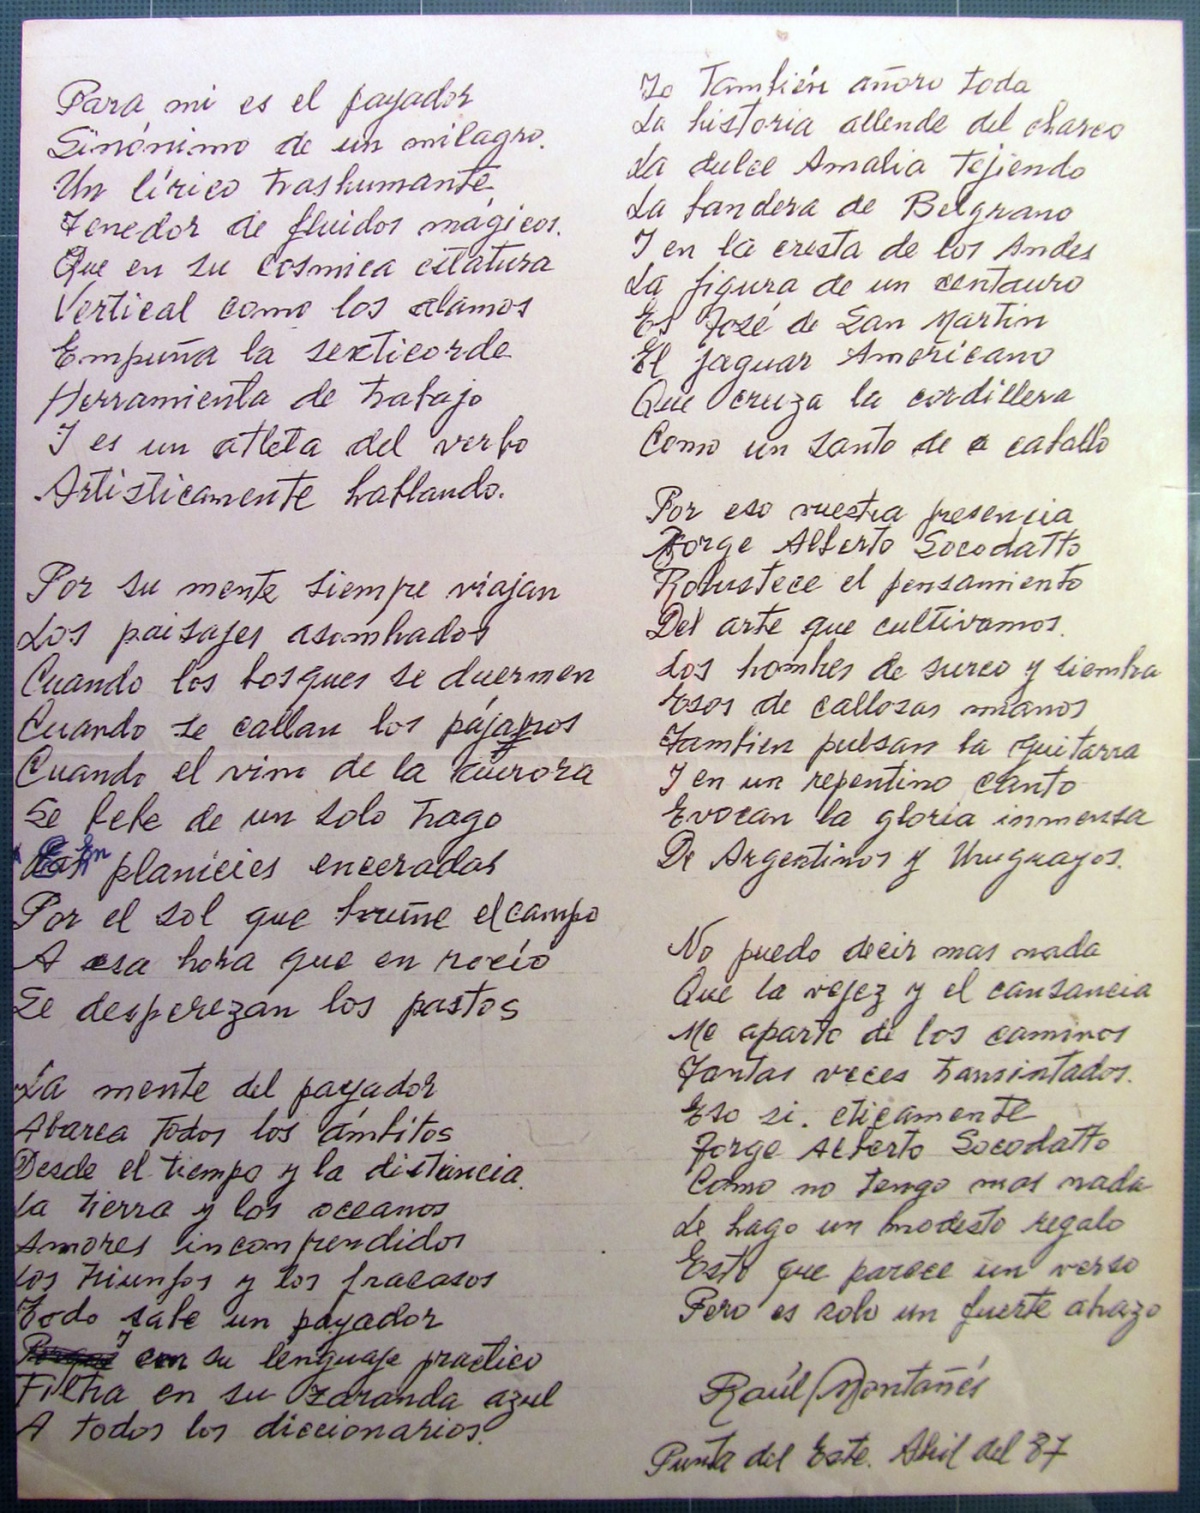 Para mi es el payador
Sinónimo de un milagro.
Un lírico trashumante
Tenedor de fluidos mágicos.
Que en su cosmica estatura
Vertical como los alamos
Empuña la sexticorde
Herramienta de trabajo
Y es un atleta del verbo
Artisticamente hablando.
Por su mente siempre viajan
Los paisajes asombrados
Cuando los bosques se duermen
Cuando se callan los pájaros
Cuando el vino de la aurora
Se bebe de un solo trago
En planicies enceradas
Por el sol que bruñe el campo
A esa hora que en rocío
Se desperezan los pastos
La mente del payador
Abarca todos los ámbitos
Desde el tiempo y la distancia.
La tierra y los oceanos
Amores incomprendidos
Los triunfos y los fracasos
Todo sabe un payador
Y con su lenguaje practico
Filtra en su zaranda azul
A todos los diccionarios.
Yo también añoro toda
La historia allende del charco
La dulce Amalia tejiendo
La bandera de Belgrano
Y en la cresta de los Andes
La figura de un centauro
Es José de San Martin
El jaguar Americano
Que cruza la cordillera
Como un santo de a caballo
Por eso vuestra presencia
Jorge Alberto Socodatto
Robustece el pensamiento
Del arte que cultivamos.
Los hombres de surco y siembra
Esos de callosas manos
Tambien pulsan la guitarra
Y en un repentino canto
Evocan la gloria inmensa
De Argentinos y Uruguayos.
No puedo decir mas nada
Que la vejez y el cansancia
Me aparto de los caminos
Tantas veces transintados.
Eso si. eticamente
Jorge Alberto Socodatto
Como no tengo mas nada
Le hago un modesto regalo
Esto que parece un verso
Pero es solo un fuerte abrazo
Raúl Montañés
Punta del Este. Abril del 87